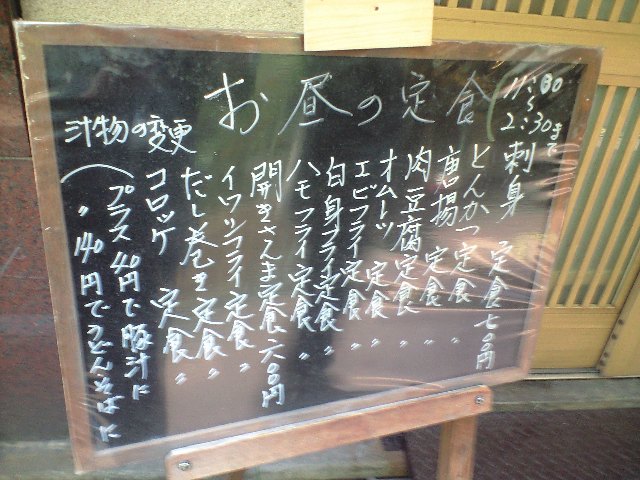 お昼の定食
11:30
〜
2:30まで
刺身 定食 七〇〇円
とんかつ定食 〃
唐揚 定食 〃
肉豆腐定食 〃
オムレツ 定食 〃
エビフライ定食 〃
白身フライ定食 〃
ハモフライ定食 〃
開きさんま定食 六〇〇円
イワシフライ定食 〃
だし巻き定食 〃
コロッケ 定食 〃
汁物の変更
(プラス40円で豚汁に
〃 140円でうどんそばに